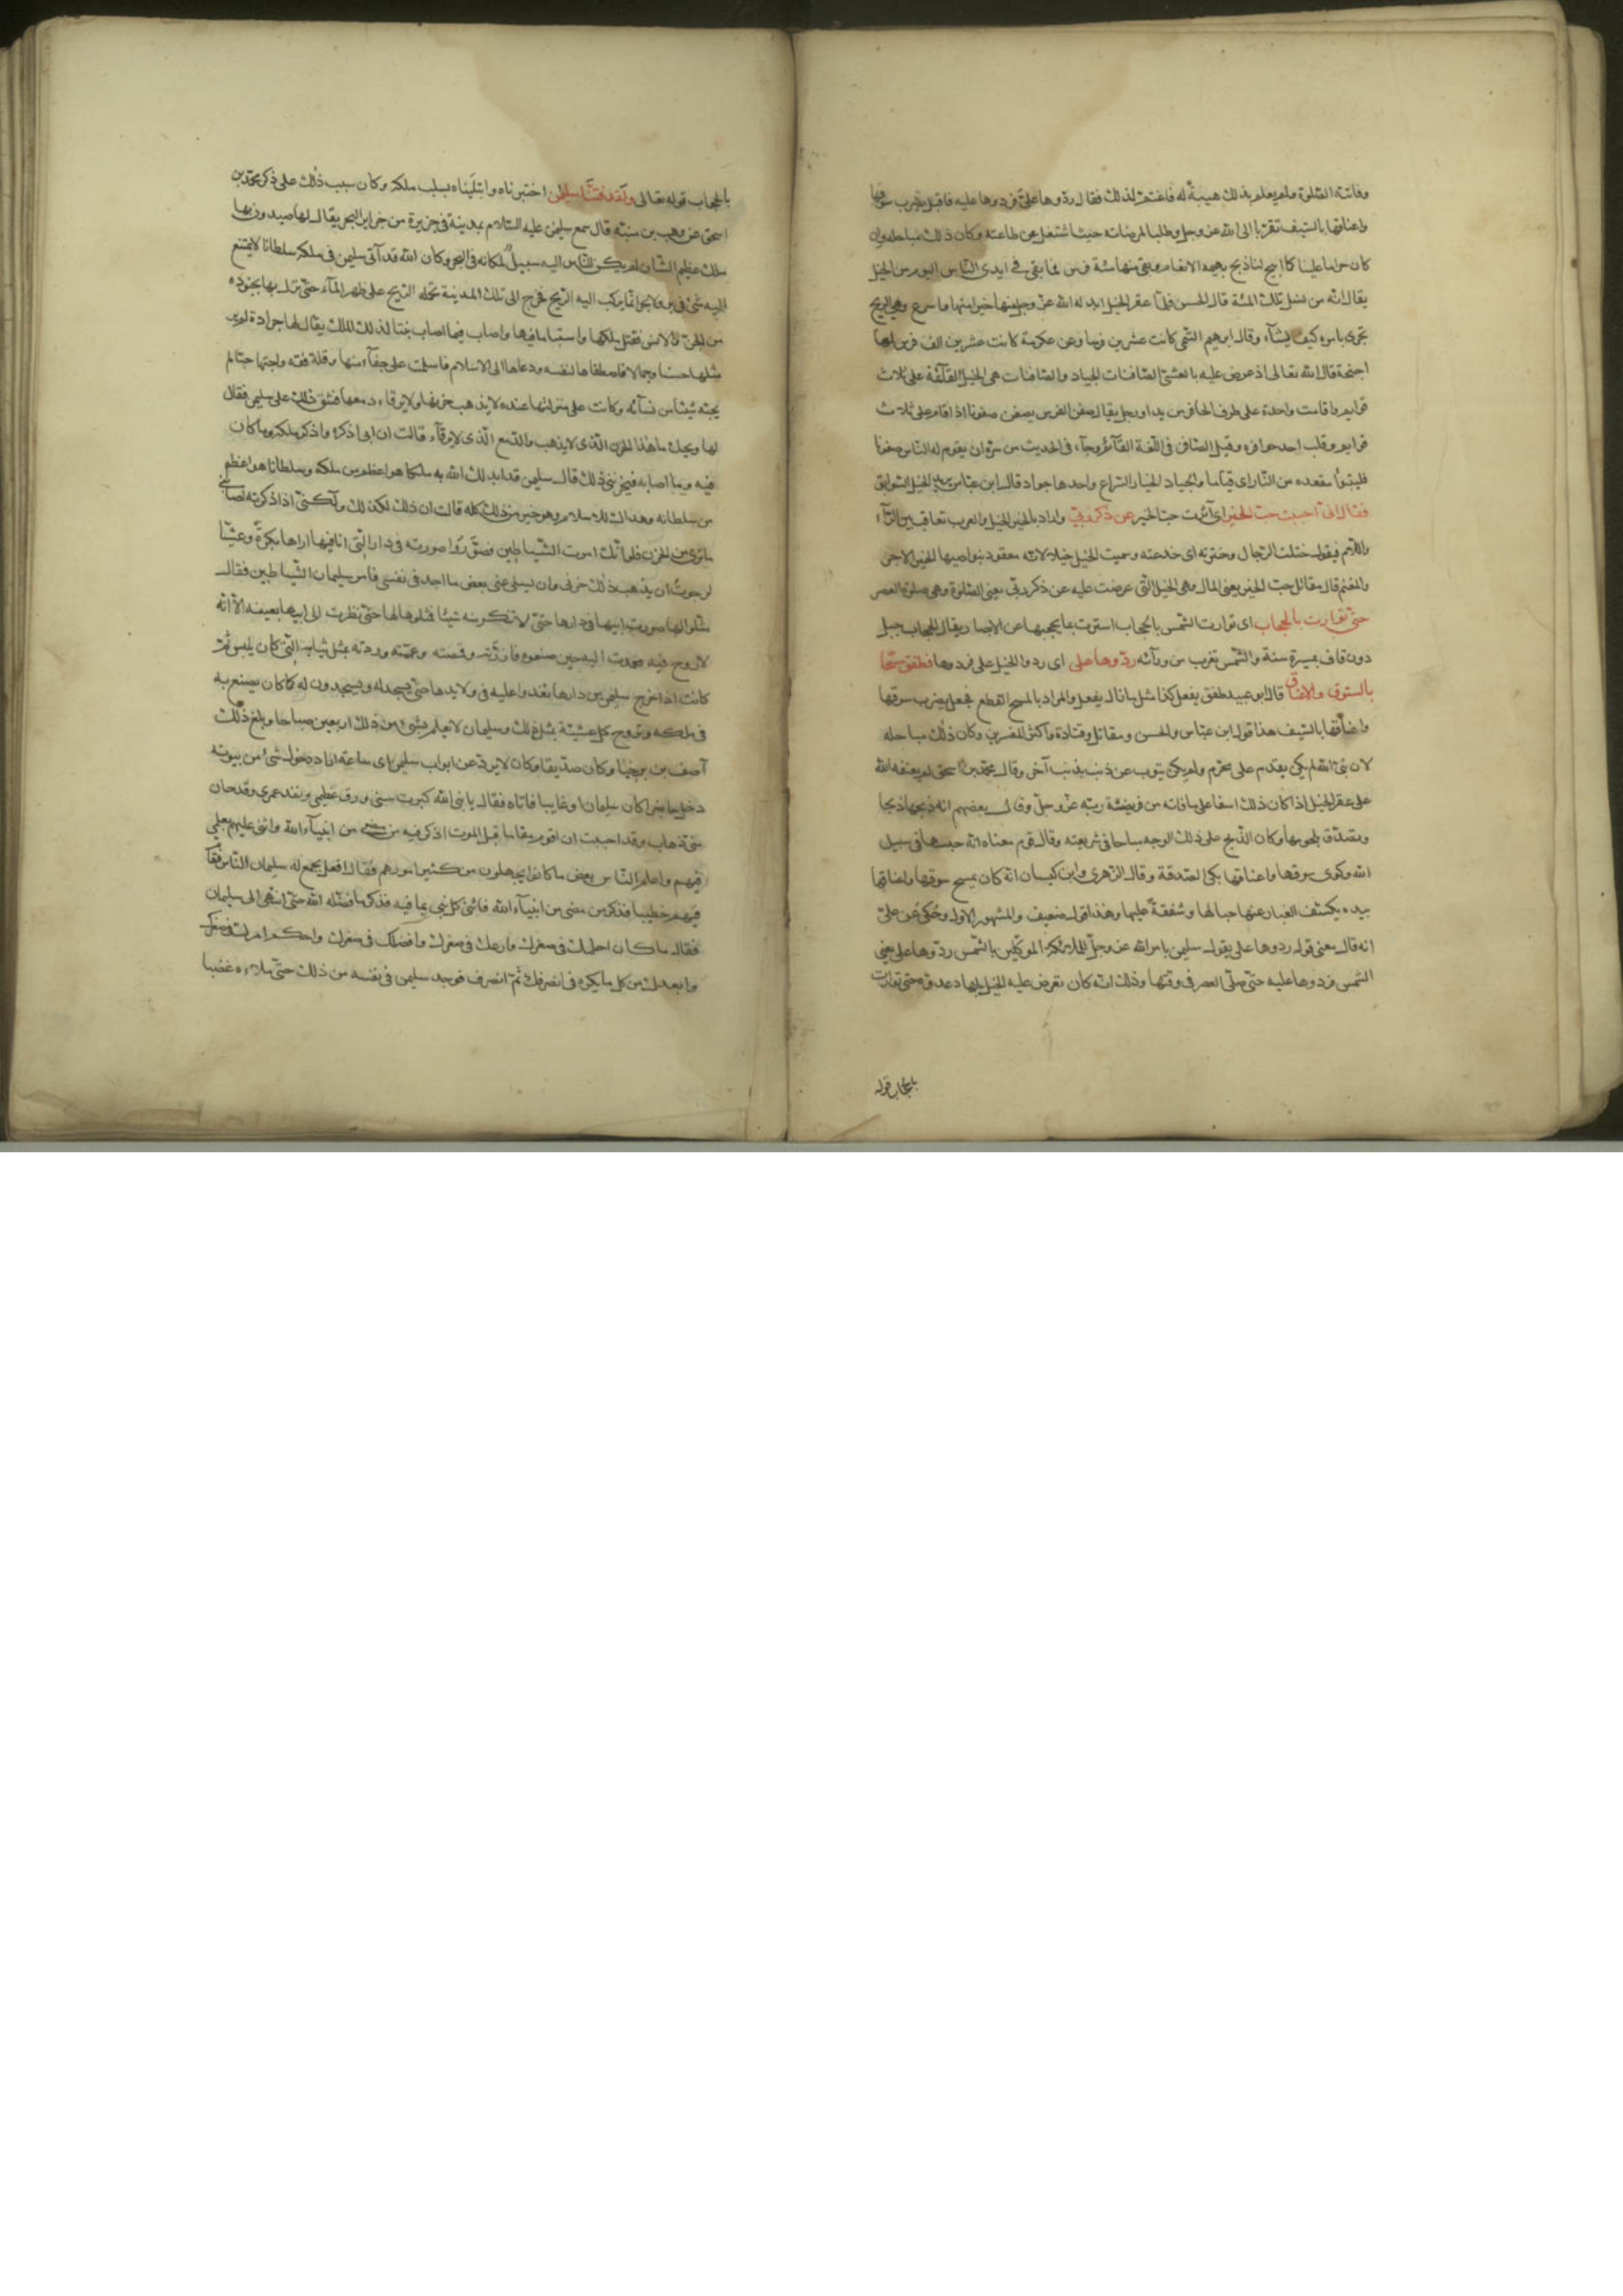 وفاتته الصلوة ولم يعلم بذلك هيبةً له فاغتمّ لذلك فقال ردّوها علىّ فردوها عليه فاقبل يضرب سوقها
واعناقها بالسّيف تقرّبا الى الله عزّ وجل وطلبا لمرضاته حيث اشتغل عن طاعته وكان ذلك مباحا له وان
كان حراما علينا كما ابيح لنا ذبح بهيمة الانعام وبقى منها مئة فرس فما بقى فى ايدى النّاس اليوم من الخيل
يقال انّه من نسل تلك المئة قال الحسن فلمّا عقر الخيل ابدله الله عزّ وجل منها خيرا منها واسرع وهى الريح
تجرى بامره كيف يشآء وقال ابرهيم التّيمى كانت عشرين فرسا وعن عكرمة كانت عشرين الف فرس لها
اجنحة قال الله تعالى اذ عرض عليه بالعشىّ الصّافنات الجياد والصّافنات هى الخيل القآئمة على ثلاث
قوايم واقامت واحدة على طرف الحافر من يد او رجل يقال صفن الفرس يصفن صفونا اذا قام على ثلاث
قوايم وقلب احد حوافره وقيل الصّافن فى اللّغة القآئم وجآء فى الحديث من سرّه ان يقوم له النّاس صفونا
فليتبوّأ مقعده من النّار اى قياما والجياد الخيار السّراع واحدها جواد قال ابن عبّاس يريد الخيل السّوابق
فقال انّى احببت حبّ الخير اى آثرت حبّ الخير عن ذكر ربّى واراد بالخير الخيل والعرب تعاقب بين الرّآء
واللّام فيقول ختلت الرّجال وخترته اى خدعته وسميت الخيل خيلا لانّه معقود بنواصيها الخير الاجر
والمغنم قال مقاتل حبّ الخير يعنى المال وهى الخيل الّتى عرضت عليه عن ذكر ربّى يعنى الصّلوة وهى صلوة العصر
حتّى توارت بالحجاب اى توارت الشّمس بالحجاب استترت بما يحجبها عن الابصار يقال الحجاب جبل
دون قاف بمسيرة سنة والشّمس تغرب من ورآئه ردّوها على اى ردوا الخيل على فردوها فطفق مسحا
بالسّوق والاعناق قال ابو عبيد طفق يفعل كذا مثل ما زال يفعل والمراد بالمسح القطع فجعل يضرب سوقها
واعناقها بالسّيف هذا قول ابن عبّاس والحسن ومقاتل وقتادة واكثر المفسّرين وكان ذلك مباحا له
لان نبىّ الله لم يكن يقدم على محرّم ولم يكن يتوب عن ذنب بذنب آخر وقال محمّد بن اسحق لم يعنفه الله
على عقر الخيل اذا كان ذلك اسفا على ما فاته من فريضة ربّه عزّ وجلّ وقال بعضهم انه ذبحها ذبحا
وتصدّق بلحومها وكان الذّبح على ذلك الوجه مباحا فى شريعته وقال قوم معناه انّه حبسها فى سبيل
الله وكوى سوقها واعناقها بكىّ الصّدقة وقال الزّهرى وابن كيسان انّه كان يمسح سوقها واعناقها
بيده يكشف الغبار عنها حبا لها وشفقةً عليها وهذا قول ضعيف والمشهور الاول وحُكى عن علىّ
انه قال معنى قوله ردوها على يقول سليمن بامر الله عزّ وجلّ للملائكة الموكّلين بالشّمس ردّوها على يعنى
الشّمس فردوها عليه حتّى صلّى العصر فى وقتها وذلك انّه كان تعرض عليه الخيل لجهاد عدوّه حتى توارت
بالحجاب قوله
بالحجاب قوله تعالى ولقد فتنّا سليمن اختبرناه وابتليناه بسلب ملكه وكان سبب ذلك على ذكر محمّد بن
اسحق عن وهب بن منبّه قال سمع سليمن عليه السّلام بمدينة فى جزيرة من جزاير البحر يقال لها صيدون بها
ملك عظيم الشّان لم يكن للنّاس اليه سبيلٌ لمكانه فى البحر وكان الله قد آتى سليمن فى ملكه سلطانا لا يمتنع
اليه شئ فى بر ولا بحر انّما يركب اليه الرّيح فخرج الى تلك المدينة تحمله الرّيح على ظهر المآء حتّى نزل بها بجنوده
من الجنّ والانس فقتل ملكها واستبا ما فيها واصاب فيما اصاب بنتا لذلك الملك يقال لها جرادة لم ير
مثلها حسنا وجمالا فاصطفاها لنفسه ودعاها الى الاسلام فاسلمت على جفآء منها وقلة فقه واحبّها حبّا لم
يحبّه شيئا من نسآئه وكانت على منزلتها عنده لا يذهب حزنها ولا يرقاء دمعها فشقّ ذلك على سليمن فقال
لها ويحك ما هذا الحزن الّذى لا يذهب والدّمع الّذى لا يرقآء قالت ان ابى اذكره واذكر ملكه وما كان
فيه وما اصابه فيحزننى ذلك قال سليمن قد ابدلك الله به ملكا هو اعظم من ملكه وسلطانا هو اعظم
من سلطانه وهداك للاسلام وهو خير من ذلك كله قالت ان ذلك لكذلك ولكنّى اذا ذكرته اصابنى
ما ترى من الحزن فلو انّك امرت الشّياطين فصوّروا صورته فى دار الّتى انا فيها اراها بكرةً وعشيّا
لرجوتُ ان يذهب ذلك حزنى وان يسلى عنى بعض ما اجد فى نفسى فامر سليمان الشّياطين فقال
مثّلوا لها صورة ابيها فى دارها حتّى لا تنكر منه شيئا فمثلوها لها حتّى نظرت الى ابيها بعينه الّا انّه
لا روح فيه فعمدت اليه حين صنعوه فازرّته وقمصته وعمّمته وردته بمثل ثيابه الّتى كان يلبس ثمّ
كانت اذا خرج سليمن من دارها تغدوا عليه فى ولايدها حتّى تسجد له ويسجدون له كما كان يصنع به
فى ملكه وتروح كل عشيّة بمثل ذلك وسليمان لا يعلم بشئ من ذلك اربعين صباحا وبلغ ذلك
آصف بن برخيا وكان صدّيقا وكان لا يردّ عن ابواب سليمن اى ساعة اراد دخول شئ من بيوته
دخل حاضرا كان سليمان او غايبا فاتاه فقال يا نبىّ الله كبرت سنى ورق عظمى ونفد عمرى وقد حان
منّى ذهاب وقد احببت ان اقوم مقاما قبل الموت اذكر فيه من مضى من انبيآء الله واثنى عليهم بعلمى
فيهم واعلم النّاس بعض ما كانوا يجهلون من كثير امورهم فقال افعل فجمع له سليمان النّاس فقام
فيهم خطيبا فذكر من مضى من انبيآء الله فاثنى كل نبى بما فيه فذكر ما فضّله الله حتّى انتهى الى سليمان
فقال ما كان احلمك فى صغرك واورعك فى صغرك وافضلك فى صغرك واحكم امرك فى صغرك
وابعدك من كل ما يكره فى صغرك ثمّ انصرف فوجد سليمن فى نفسه من ذلك حتّى ملاءه غضبا